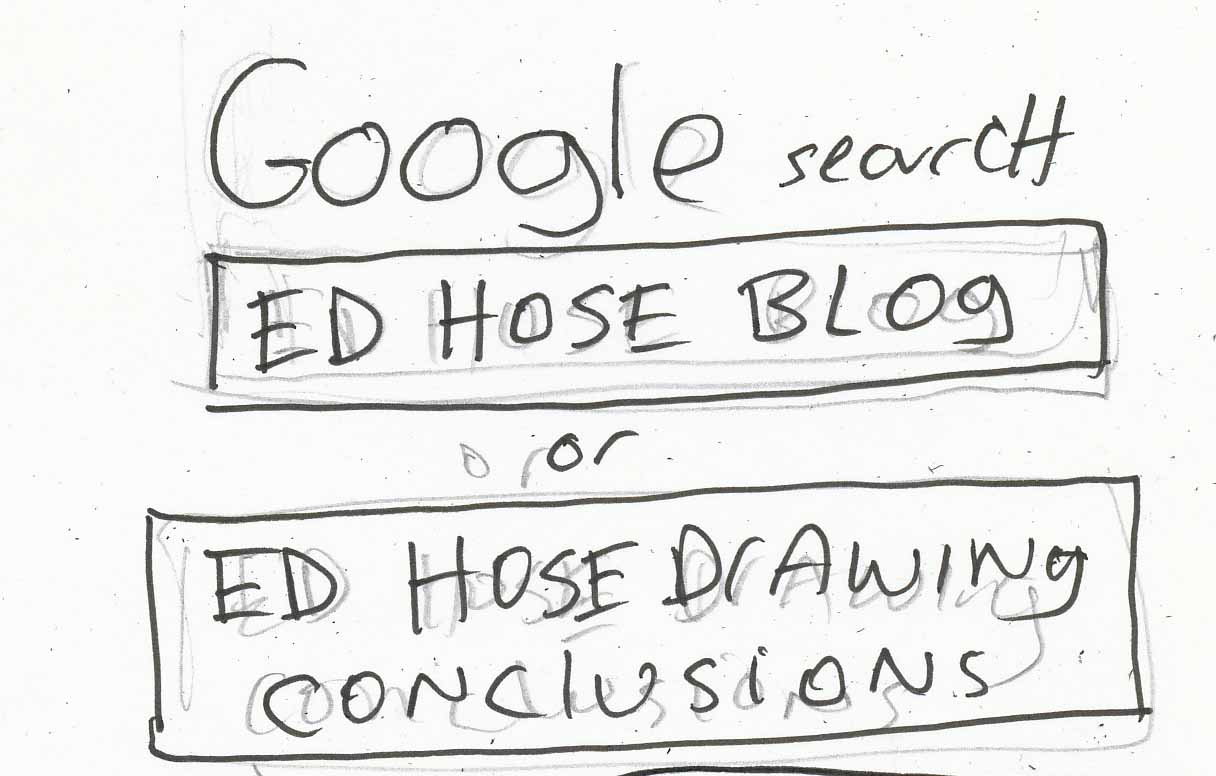 Google search
ED HOSE BLOg
or
ED HOSE DrAwINg
CONClUSiONS